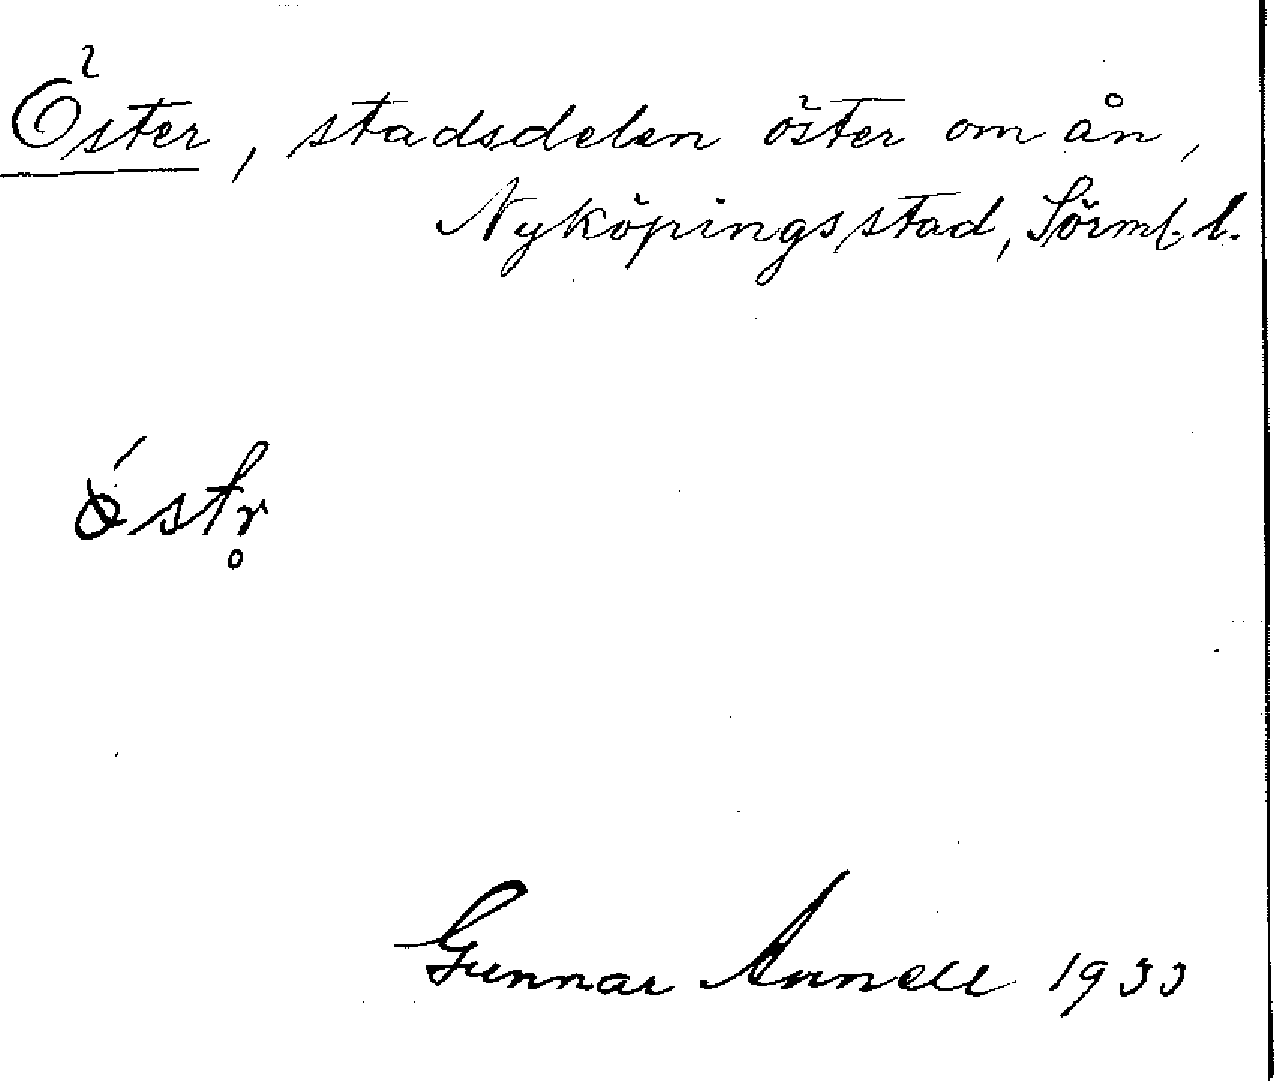 Öster, stadsdelen öster om ån,
Nyköpings stad, Sörml. l.
ǿstr̥
Gunnar Annell 1933